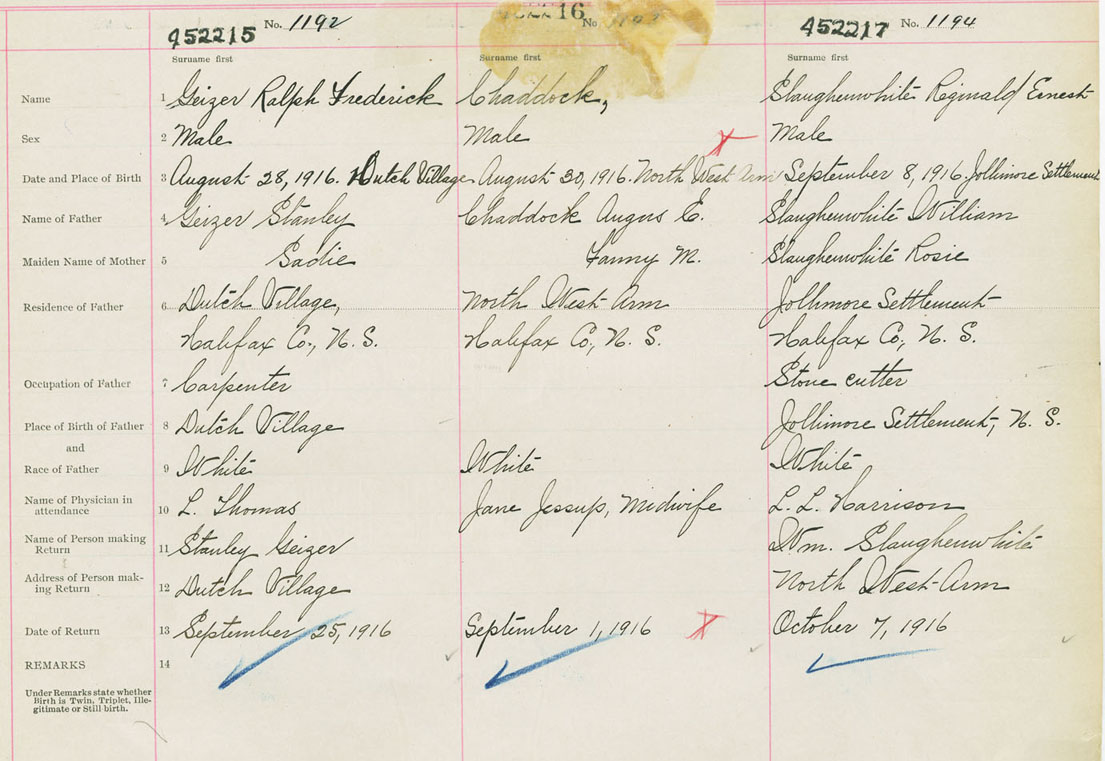 452215 No. 1192 16 No 1194 452217 No. 1194
Surname first Surname first Surname first
Name 1 Geizer Ralph Frederick Chaddock, Slaughenwhite Reginald Ernest
Sex 2 Male Male Male
Date and Place of Birth 3 August 28, 1916. Dutch Village August 30, 1916. North West Arm September 8, 1916. Jollimore Settlement
Name of Father 4 Geizer Stanley Chaddock Angus E. Slaughenwhite William
Maiden Name of Mother 5 Sadie Fanny M. Slaughenwhite Rosie
Residence of Father 6 Dutch Village, North West Arm Jollimore Settlement
Halifax Co., N. S. Halifax Co., N. S. Halifax Co., N. S.
Occupation of Father 7 Carpenter Stone cutter
Place of Birth of Father 8 Dutch Village Jollimore Settlement, N. S.
and
Race of Father 9 White White White
Name of Physician in
attendance 10 L. Thomas Jane Jessup, Midwife L. L. Harrison
Name of Person making
Return 11 Stanley Geizer Wm. Slaughenwhite
Address of Person mak-
ing Return 12 Dutch Village North West Arm
Date of Return 13 September 25, 1916 September 1, 1916 October 7, 1916
REMARKS 14
Under Remarks state whether
Birth is Twin, Triplet, Ille-
gitimate or Still birth.